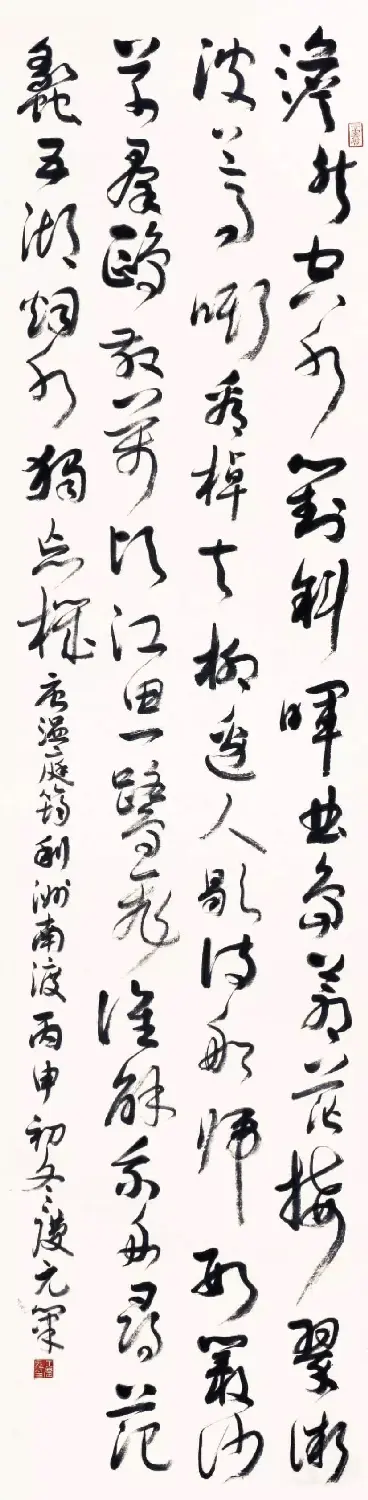 澹然空水對斜暉曲島蒼茫接翠微
波上馬嘶看棹去柳邊人歇待船歸數叢沙
草羣鷗散萬頃江田一鷺飛誰解乘舟尋范
蠡五湖烟水獨忘機唐溫庭筠利洲南渡丙申初冬元